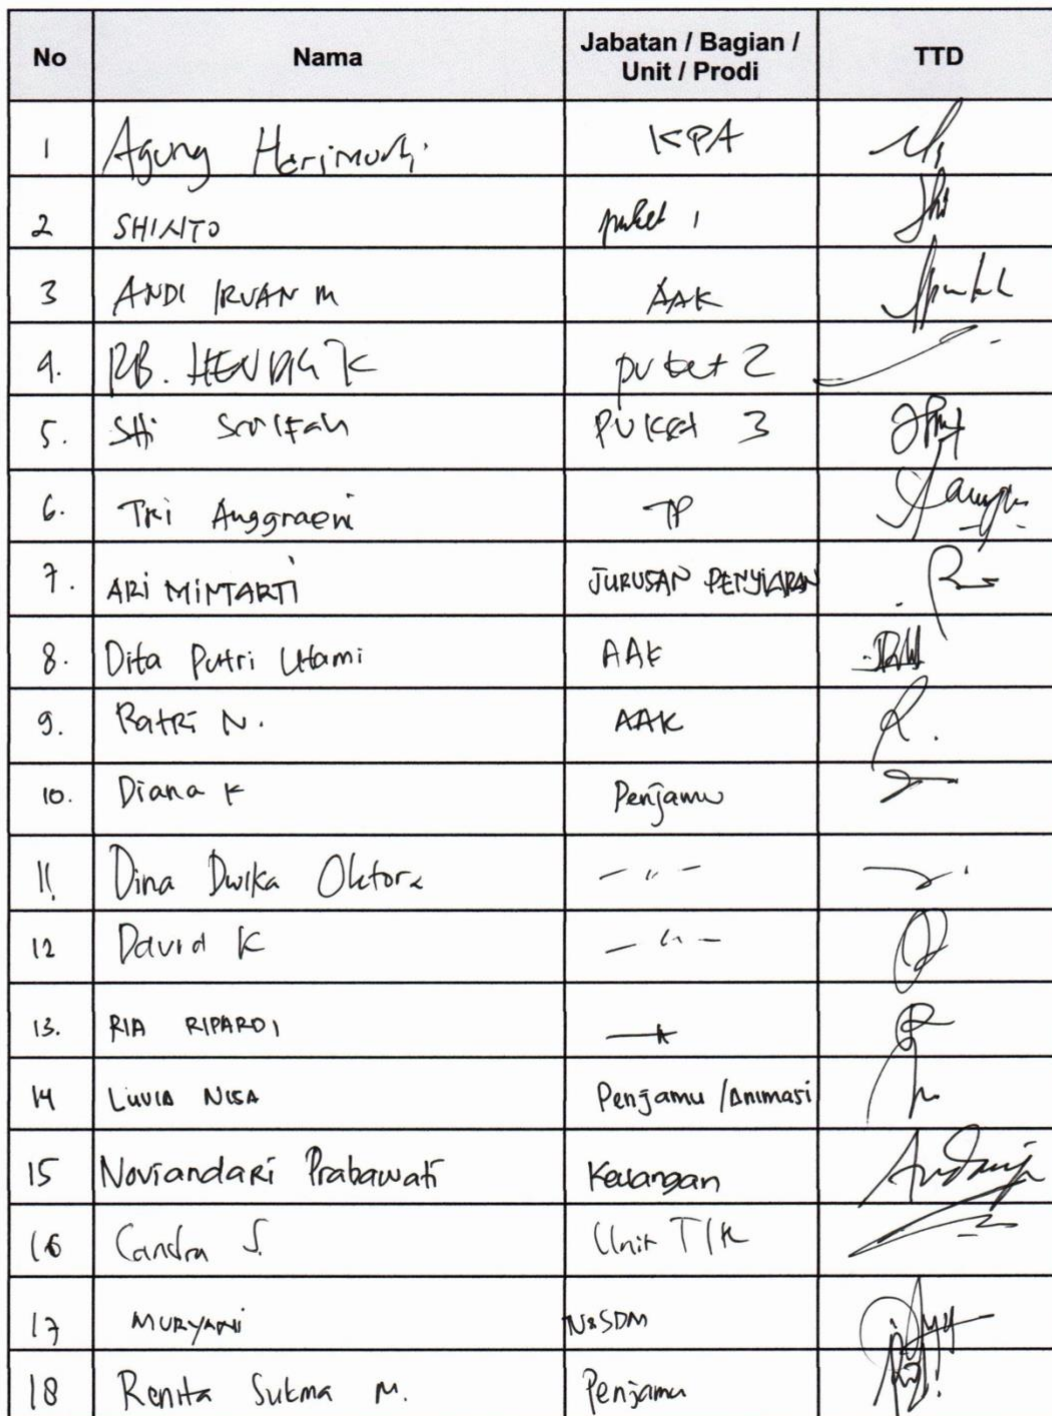 No Nama Jabatan / Bagian / Unit / Prodi TTD
1 Agung Harimurti KPA
2 SHINTO puket 1
3 ANDI IRVAN M AAK
4. RB. HENDRA K puket 2
5. Siti Puket 3
6. Tri Anggraeni TP
7. ARI MINTARTI JURUSAN PENYIARAN
8. Dita Putri Utami AAK
9. Ratri N. AAK
10. Diana K Penjamu
11. Dina Dwika Oktora - " -
12 David K - " -
13. RIA RIPARDI
14 LIUVIA NISA Penjamu /Animasi
15 Noviandari Prabawati Keuangan
16 Candra S. Unit TIK
17 MURYANI SDM
18 Renita Sukma M. Penjamu